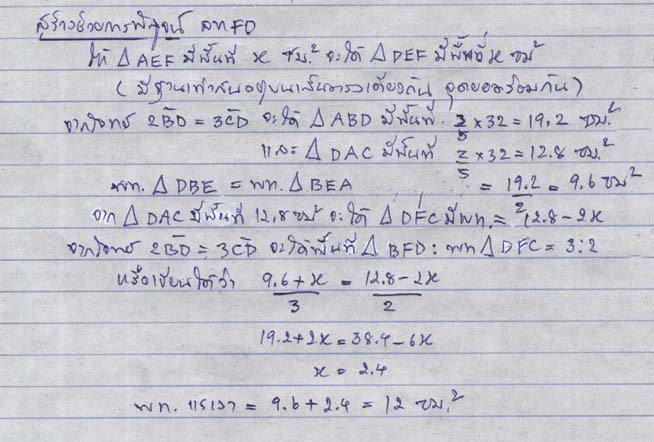 สร้างด้วยการพิสูจน์ ลาก FD
ให้ △ AEF มีพื้นที่ x ซม.² จะได้ △ DEF มีพื้นที่ x ซม²
(มีฐานเท่ากันอยู่บนเส้นตรงเดียวกัน จุดยอดร่วมกัน)
จากโจทย์ 2BD = 3CD จะได้ △ ABD มีพื้นที่ 3/5 × 32 = 19.2 ซม.²
และ △ DAC มีพื้นที่ 2/5 × 32 = 12.8 ซม.²
พท. △ DBE = พท. △ BEA = 19.2/2 = 9.6 ซม²
จาก △ DAC มีพื้นที่ 12.8 ซม² จะได้ △ DFC มีพท. = 12.8 - 2x
จากโจทย์ 2BD = 3CD จะได้พื้นที่ △ BFD : พท △ DFC = 3:2
หรือเขียนได้ว่า 9.6 + x/3 = 12.8 - 2x/2
19.2 + 2x = 38.4 - 6x
x = 2.4
พท. แรเงา = 9.6 + 2.4 = 12 ซม.²